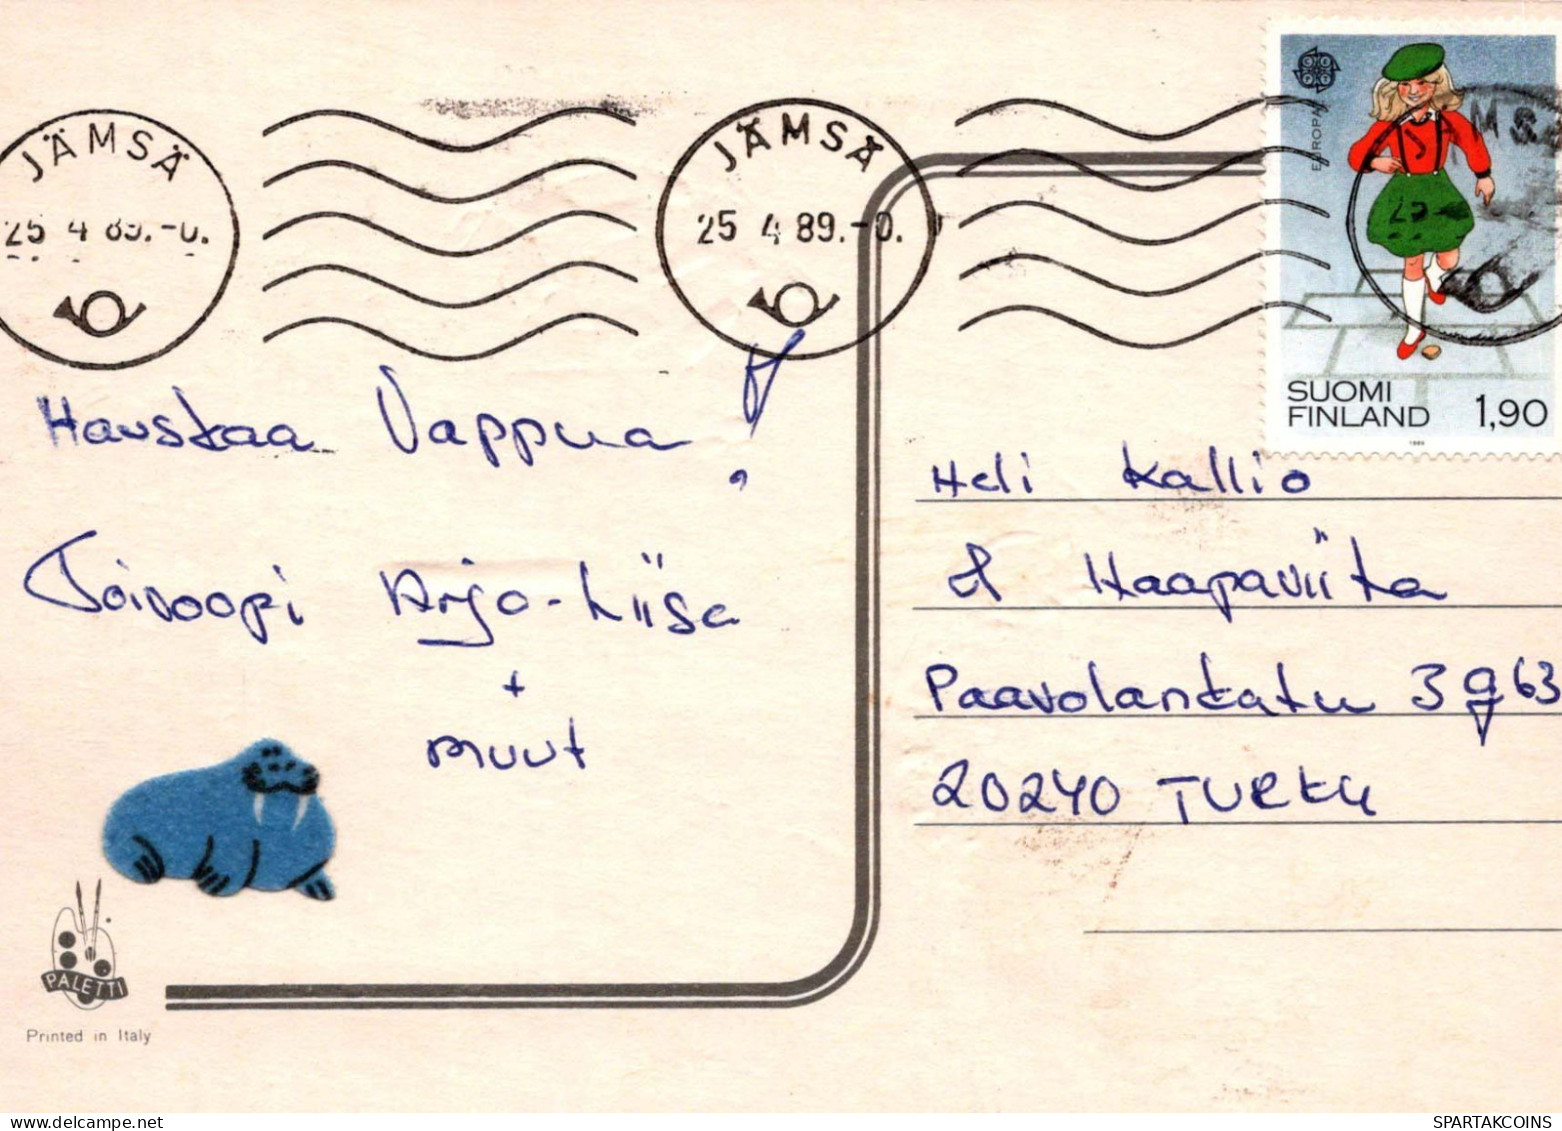 JÄMSÄ
25 4 89.-0.
JÄMSÄ
25 4 89.-0.
EUROPA
JÄMSÄ
25
SUOMI
FINLAND 1,90
1989
Hauskaa Vappua!
Toivoopi Arjo-Liisa
+
muut
Heli Kallio
& Haapaviita
Paavolankatu 3 g 63
20240 TURKU
PALETTI
Printed in Italy
SPARTAKCOINS